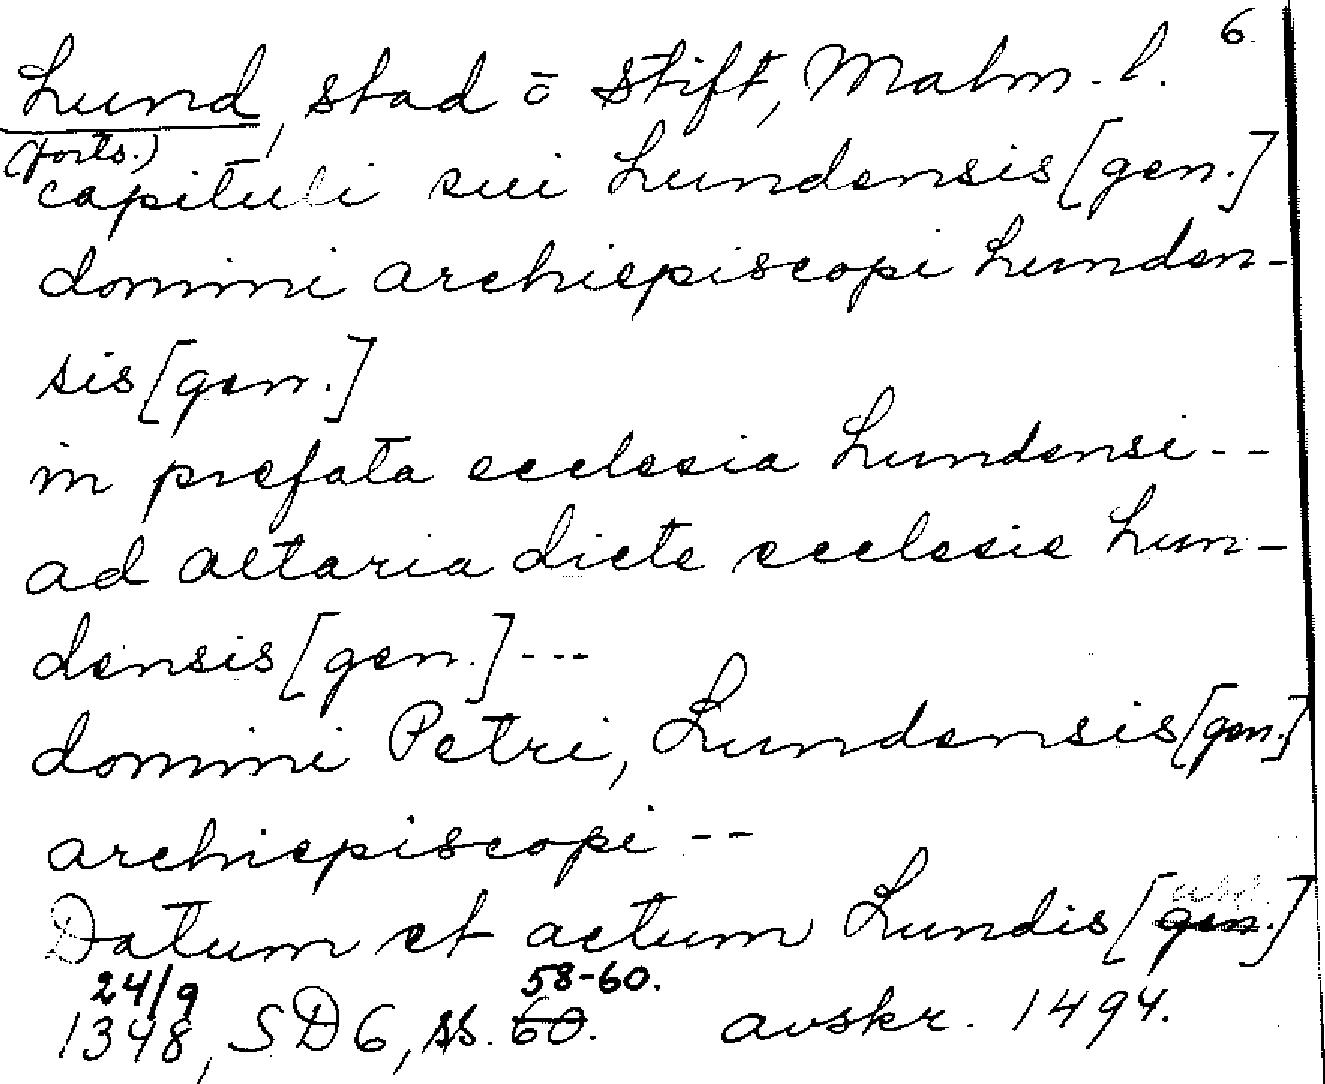 6.
Lund, stad o stift, Malm. l.
(forts.)
capituli sui Lundensis [gen.]
domini archiepiscopi Lunden-
sis [gen.]
in prefata ecclesia Lundensi --
ad altaria dicte ecclesie Lun-
densis [gen.] ---
domini Petri, Lundensis [gen.]
archiepiscopi --
Datum et actum Lundis [gen.]
24/9 58-60.
1348, SD 6, ss. 60. avskr. 1494.